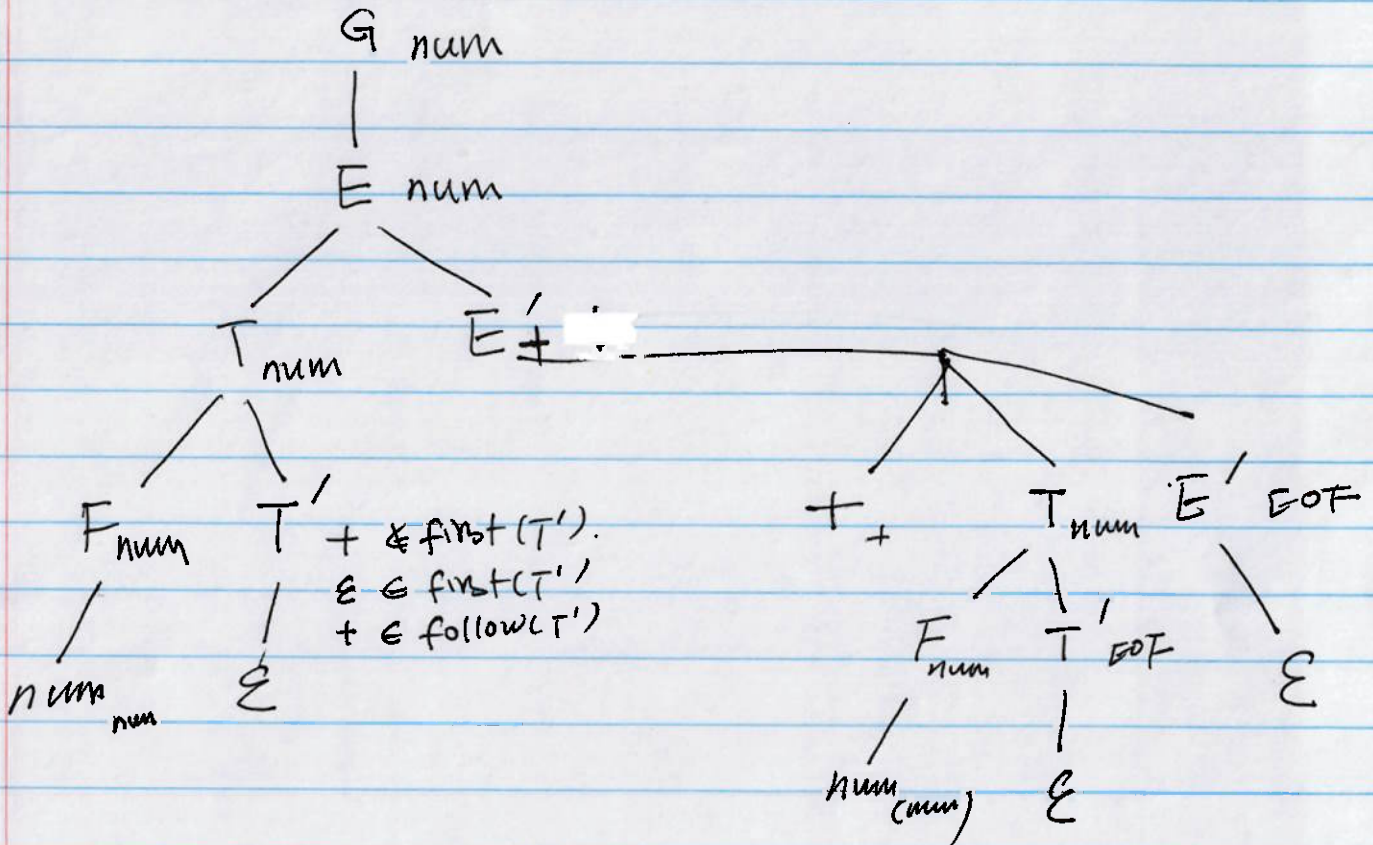 G num
E num
T num E' +
F num T' + ∉ first(T').
ε ∈ first(T')
+ ∈ follow(T')
num num ε
+ + T num E' EOF
F num T' EOF ε
num (num) ε